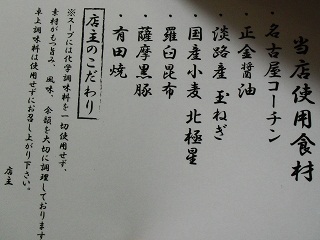 当店使用食材
・名古屋コーチン
・正金醤油
・淡路産 玉ねぎ
・国産小麦 北極星
・羅臼昆布
・薩摩黒豚
・有田焼
店主のこだわり
※スープには化学調味料を一切使用せず、
素材がもつ旨み、風味、余韻を大切に調理しております
卓上調味料は使用せずにお召し上がり下さい。
店主